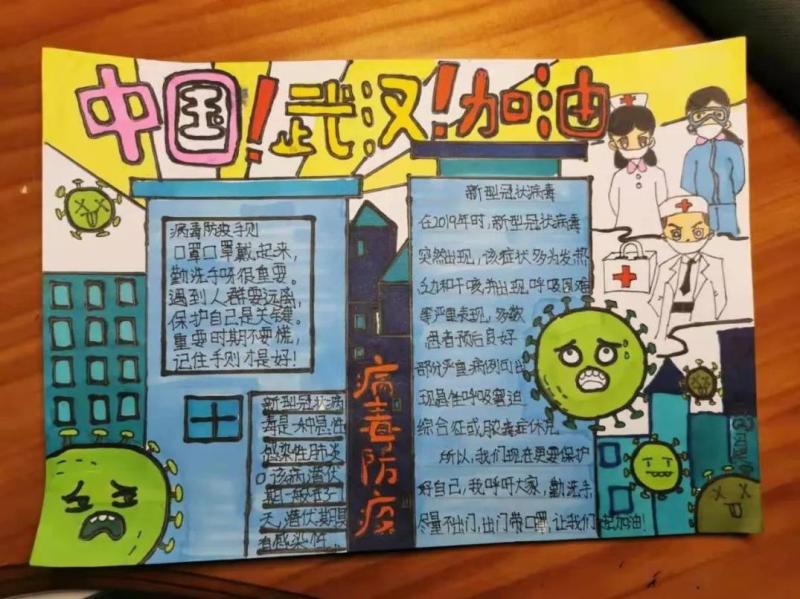 中国！武汉！加油
病毒防疫手则
口罩口罩戴起来，
勤洗手呀很重要。
遇到人群要远离，
保护自己是关键。
重要时期不要慌，
记住手则才是好！
新型冠状病
毒是一种急性
感染性肺炎
。该病潜伏
期一般在
天，潜伏期具
有感染性
病毒防疫
新型冠状病毒
在2019年时，新型冠状病毒
突然出现，该症状多为发热
乏力和干咳并出现呼吸困难
等严重表现，多数
患者预后良好
部分严重病例可出
现急性呼吸窘迫
综合征或脓毒症休克
所以，我们现在更要保护
好自己，我呼吁大家，勤洗手
尽量不出门，出门带口罩，让我们一起加油！